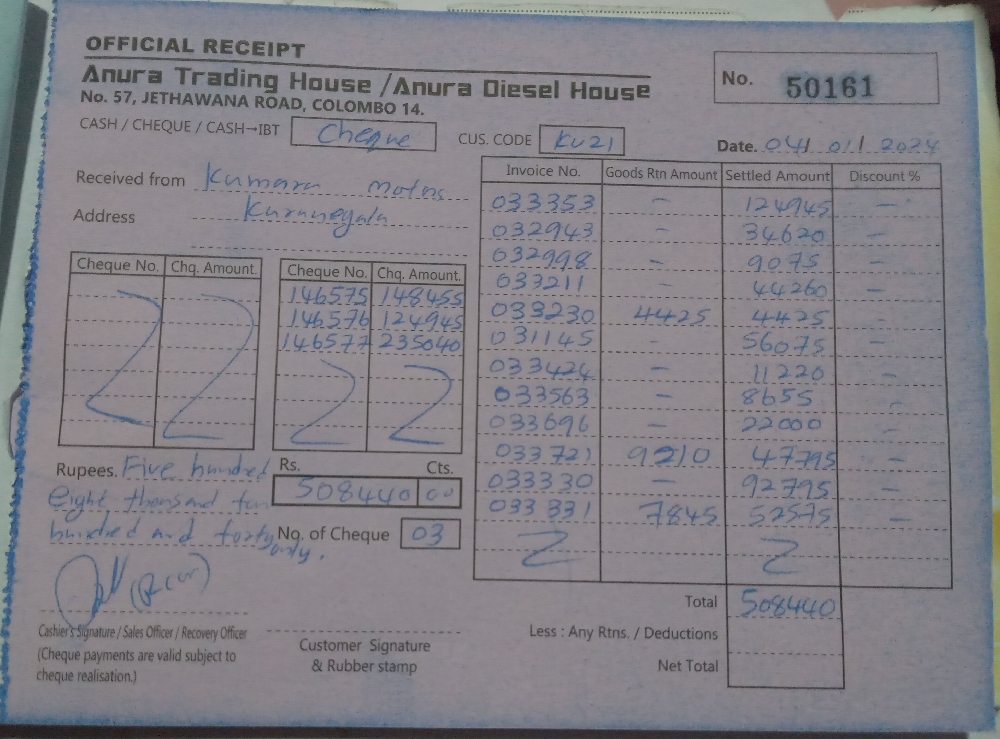 OFFICIAL RECEIPT
Anura Trading House /Anura Diesel House
No. 57, JETHAWANA ROAD, COLOMBO 14.
No. 50161
CASH / CHEQUE / CASH→IBT Cheque CUS. CODE KU21 Date. 04/ 01/ 2024
Received from Kumara motors
Address Kurunegala
Invoice No. Goods Rtn Amount Settled Amount Discount %
033353 – 124945 –
032943 – 34620 –
032998 – 9075 –
033211 – 44260 –
033230 4425 4425 –
031145 – 56075 –
033424 – 11220 –
033563 – 8655 –
033696 – 22000 –
033721 9210 47795 –
033330 – 92795 –
033331 7845 52575 –
Cheque No. Chq. Amount. Cheque No. Chq. Amount.
146575 148455
146576 124945
146577 235040
Rupees. Five hundred
eight thousand four
hundred and forty only.
Rs. Cts.
508440 00
No. of Cheque 03
Total 508440
Less : Any Rtns. / Deductions
Net Total
Cashier's Signature / Sales Officer / Recovery Officer
(Cheque payments are valid subject to
cheque realisation.)
Customer Signature
& Rubber stamp